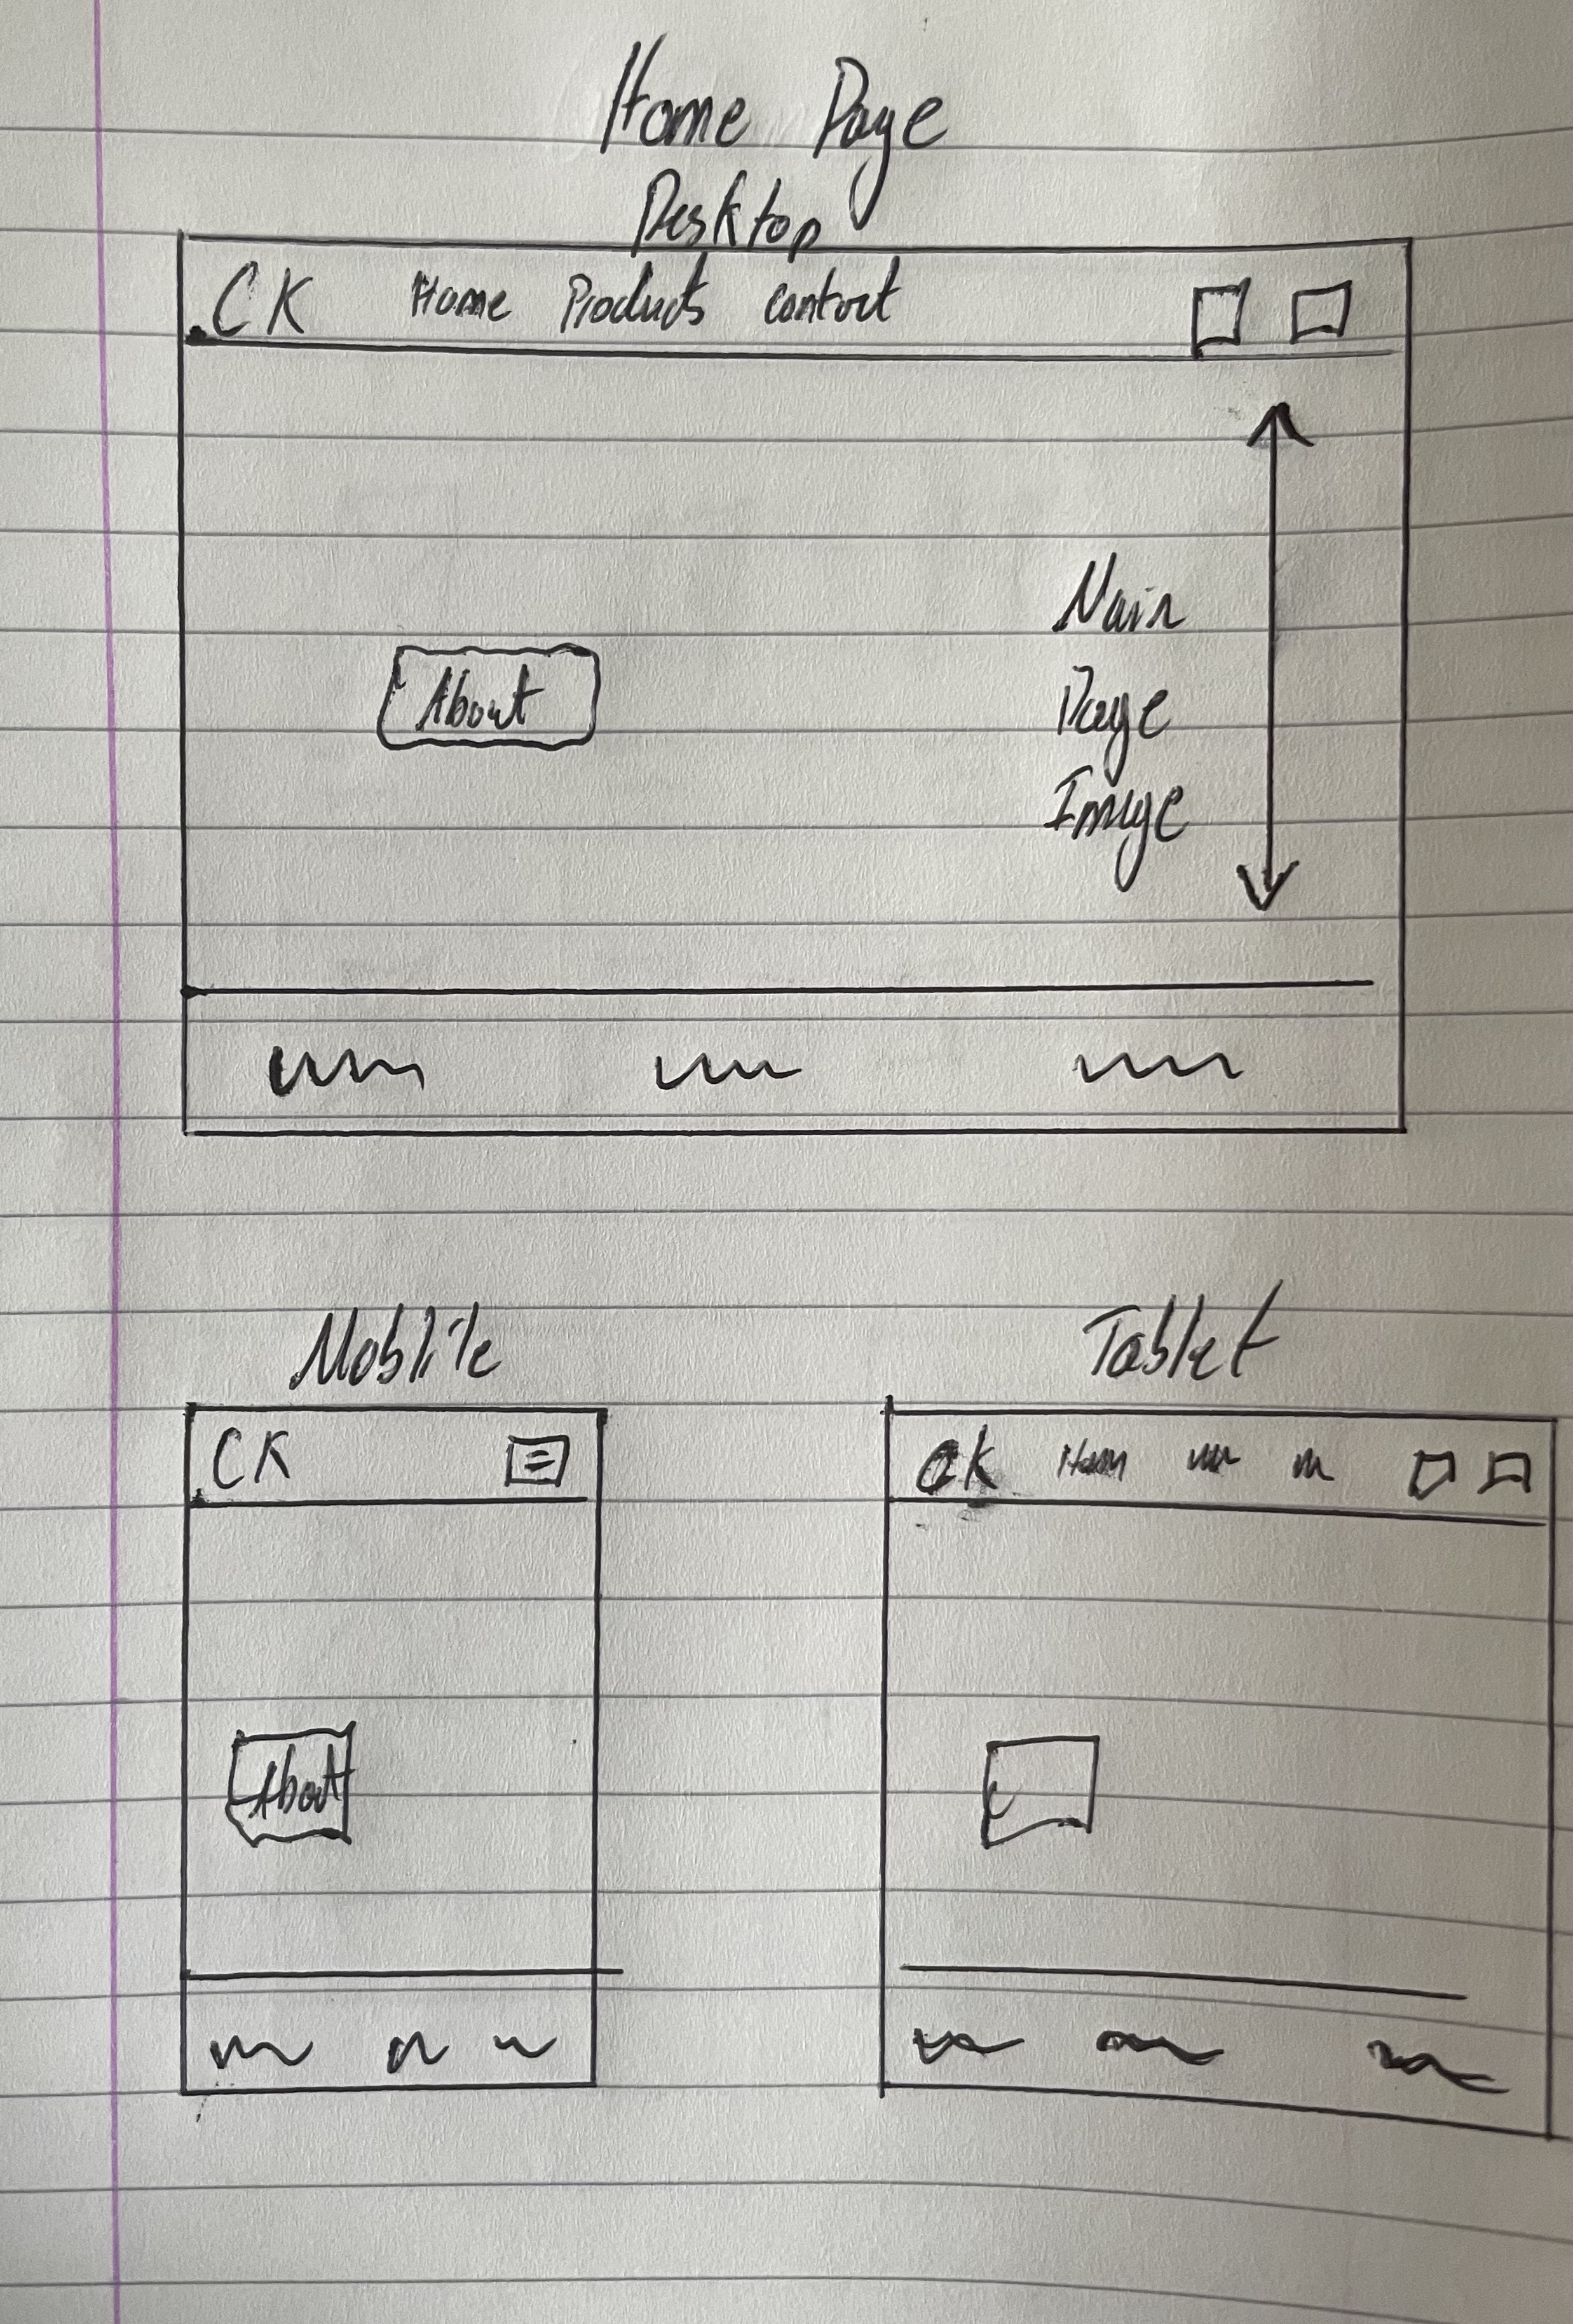 Home Page
Desktop
CK Home Products contact
Main
Page
Image
About
Mobile
CK
About
Tablet
CK Hom